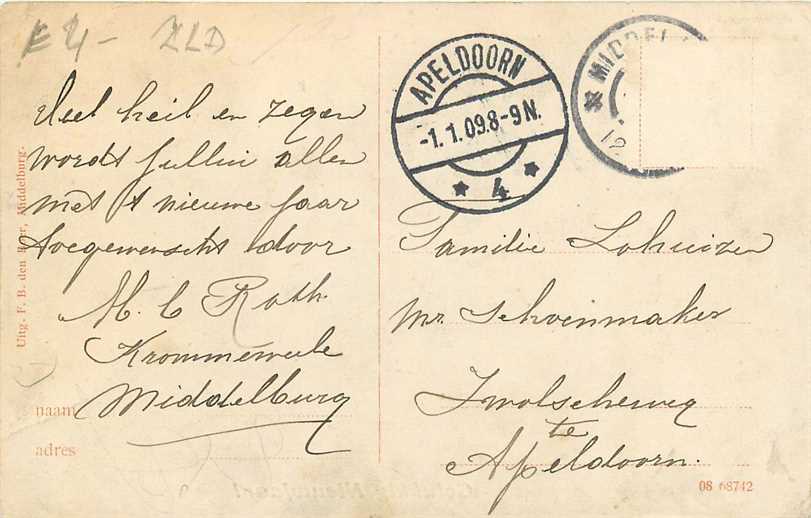 E 4,- ZLD
Veel heil en zegen
wordt jullie allen
met 't nieuwe jaar
toegewenscht door
M. C Roth
Krommeweele
Middelburg
naam
adres
Uitg. F. B. den Boer, Middelburg.
APELDOORN
-1.1.09.8-9N.
* 4 *
* MIDDEL
12
Familie Lohuizen
Mr Schoenmaker
Zwolscheweg
te
Apeldoorn.
08 68742